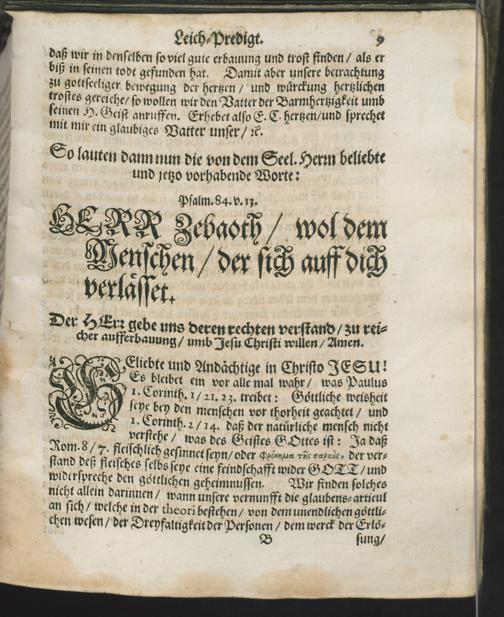 Leich-Predigt. 9
daß wir in denselben so viel gute erbauung und trost finden / als er
biß in seinen todt gefunden hat. Damit aber unsere betrachtung
zu gottseeliger bewegung der hertzen / und würckung hertzlichen
trostes gereiche / so wollen wir den Vatter der Barmhertzigkeit umb
seinen H. Geist anruffen. Erhebet also E. C. hertzen / und sprechet
mit mir ein glaubiges Vatter unser / ꝛc.
So lauten dann nun die von dem Seel. Herrn beliebte
und jetzo vorhabende Worte:
Psalm. 84. v. 13.
HERR Zebaoth / wol dem
Menschen / der sich auff dich
verlässet.
Der HErr gebe uns deren rechten verstand / zu rei-
cher aufferbauung / umb Jesu Christi willen / Amen.
Geliebte und Andächtige in Christo JESU!
Es bleibet ein vor alle mal wahr / was Paulus
1. Corinth. 1 / 21. 23. treibet: Göttliche weisheit
seye bey den menschen vor thorheit geachtet / und
1. Corinth. 2 / 14. daß der natürliche mensch nicht
verstehe / was des Geistes GOttes ist: Ja daß
Rom. 8 / 7. fleischlich gesinnet seyn / oder φρόνημα τῆς σαρκὸς, der ver-
stand deß fleisches selbs seye eine feindschafft wider GOTT / und
widerspreche den göttlichen geheimnussen. Wir finden solches
nicht allein darinnen / wann unsere vernunfft die glaubens-articul
an sich / welche in der theori bestehen / von dem unendlichen göttli-
chen wesen / der Dreyfaltigkeit der Personen / dem werck der Erlö-
B sung /